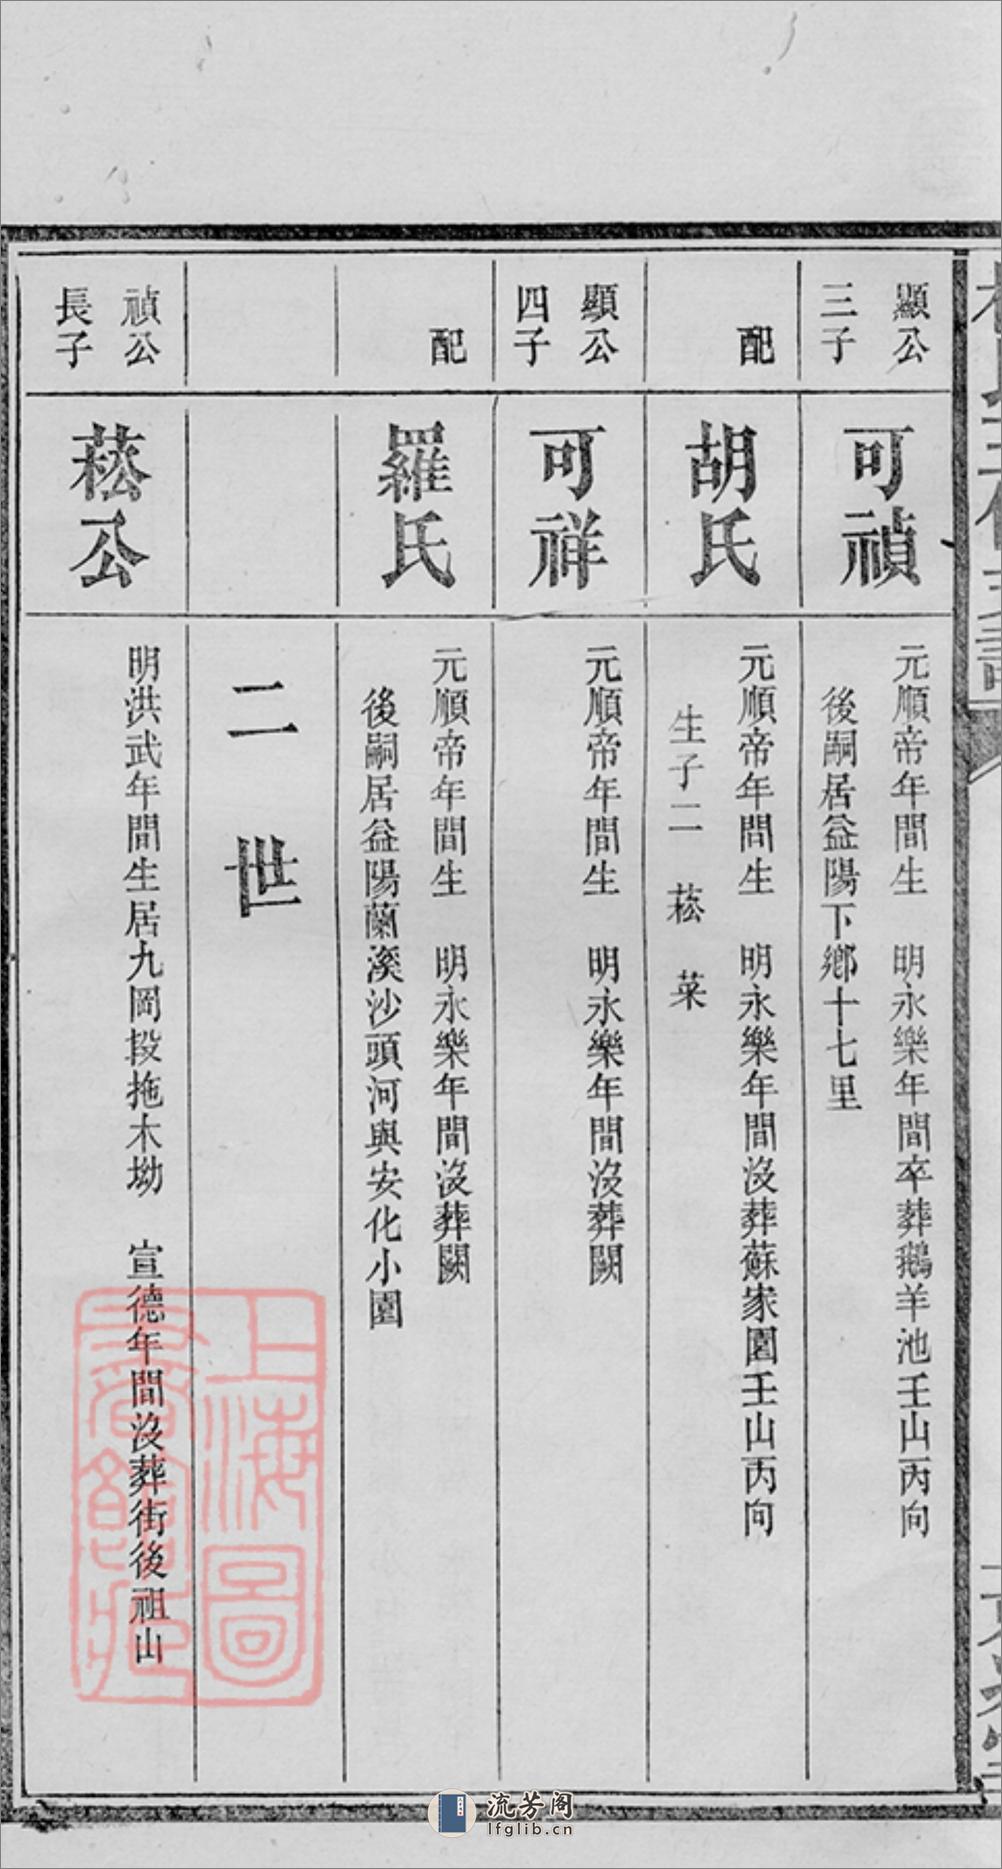 顯公
三子
可禎
元順帝年間生　明永樂年間卒葬鵝羊池壬山丙向
後嗣居益陽下鄉十七里
配
胡氏
元順帝年間生　明永樂年間沒葬蘇家園壬山丙向
生子二　菘　菜
顯公
四子
可祥
元順帝年間生　明永樂年間沒葬闕
配
羅氏
元順帝年間生　明永樂年間沒葬闕
後嗣居益陽蘭溪沙頭河與安化小園
二世
禎公
長子
菘公
明洪武年間生居九岡段拖木坳　宣德年間沒葬街後祖山
上海圖
書館藏
流芳阁
lfglib.cn